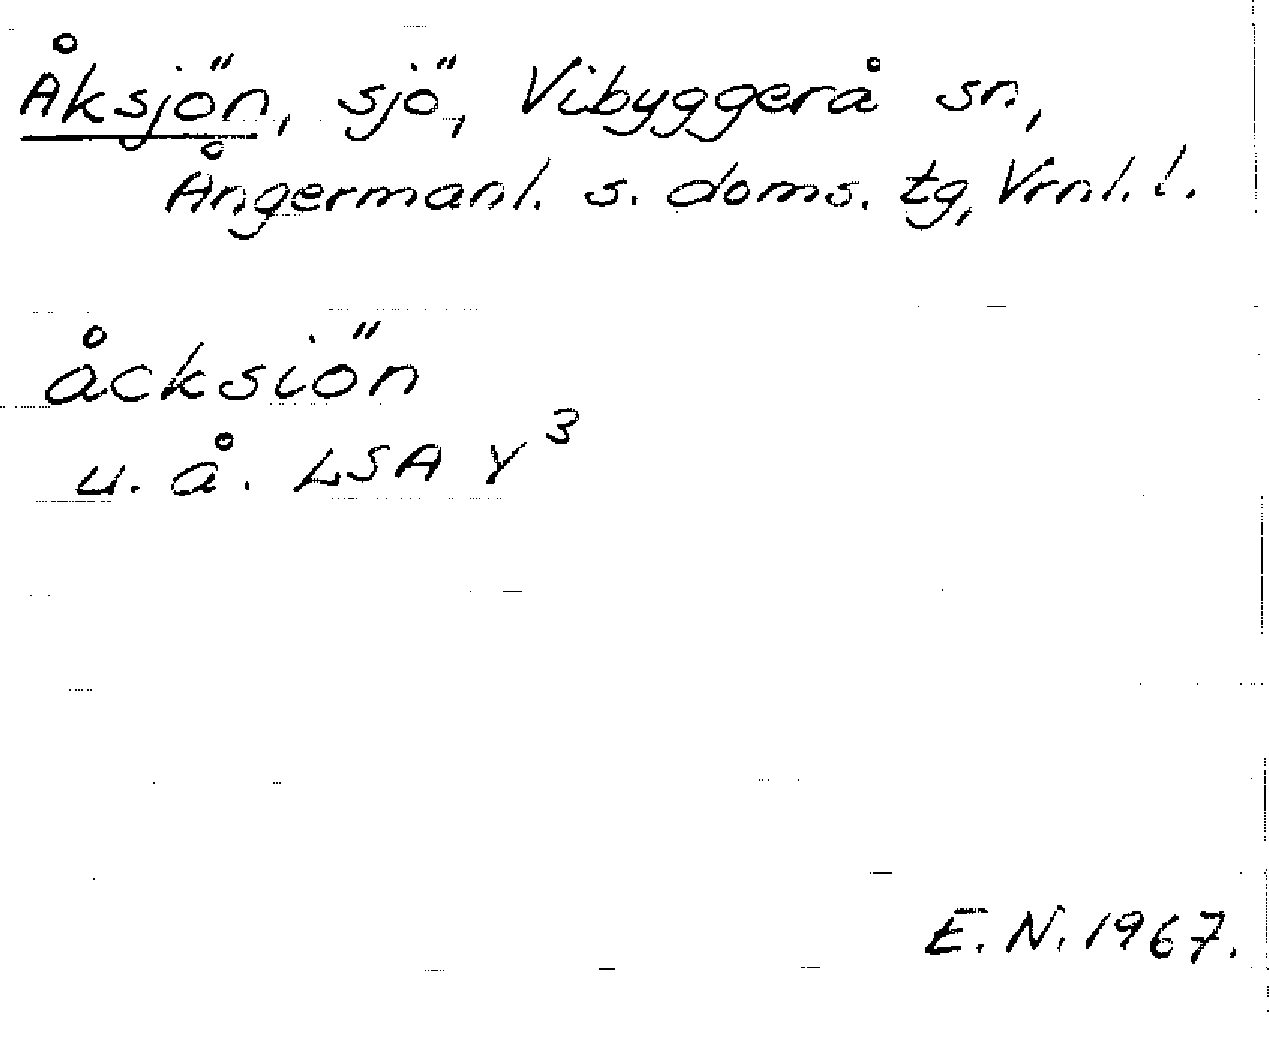 Åksjön, sjö, Vibyggerå sn,
Ångermanl. s. doms. tg, Vrnl. l.
åcksiön
u. å. LSA Y³
E. N. 1967.